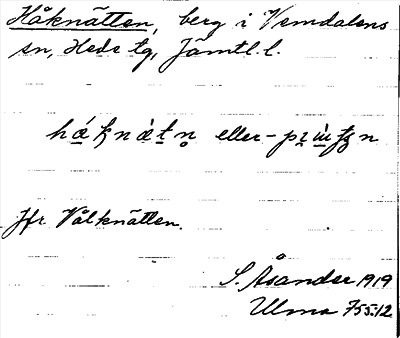 Håknätten, berg i Vemdalens
sn, Heds tg, Jämtl. l.
eller
Jfr Vålknätten.
S. Åsander 1919
Ulma 755:12